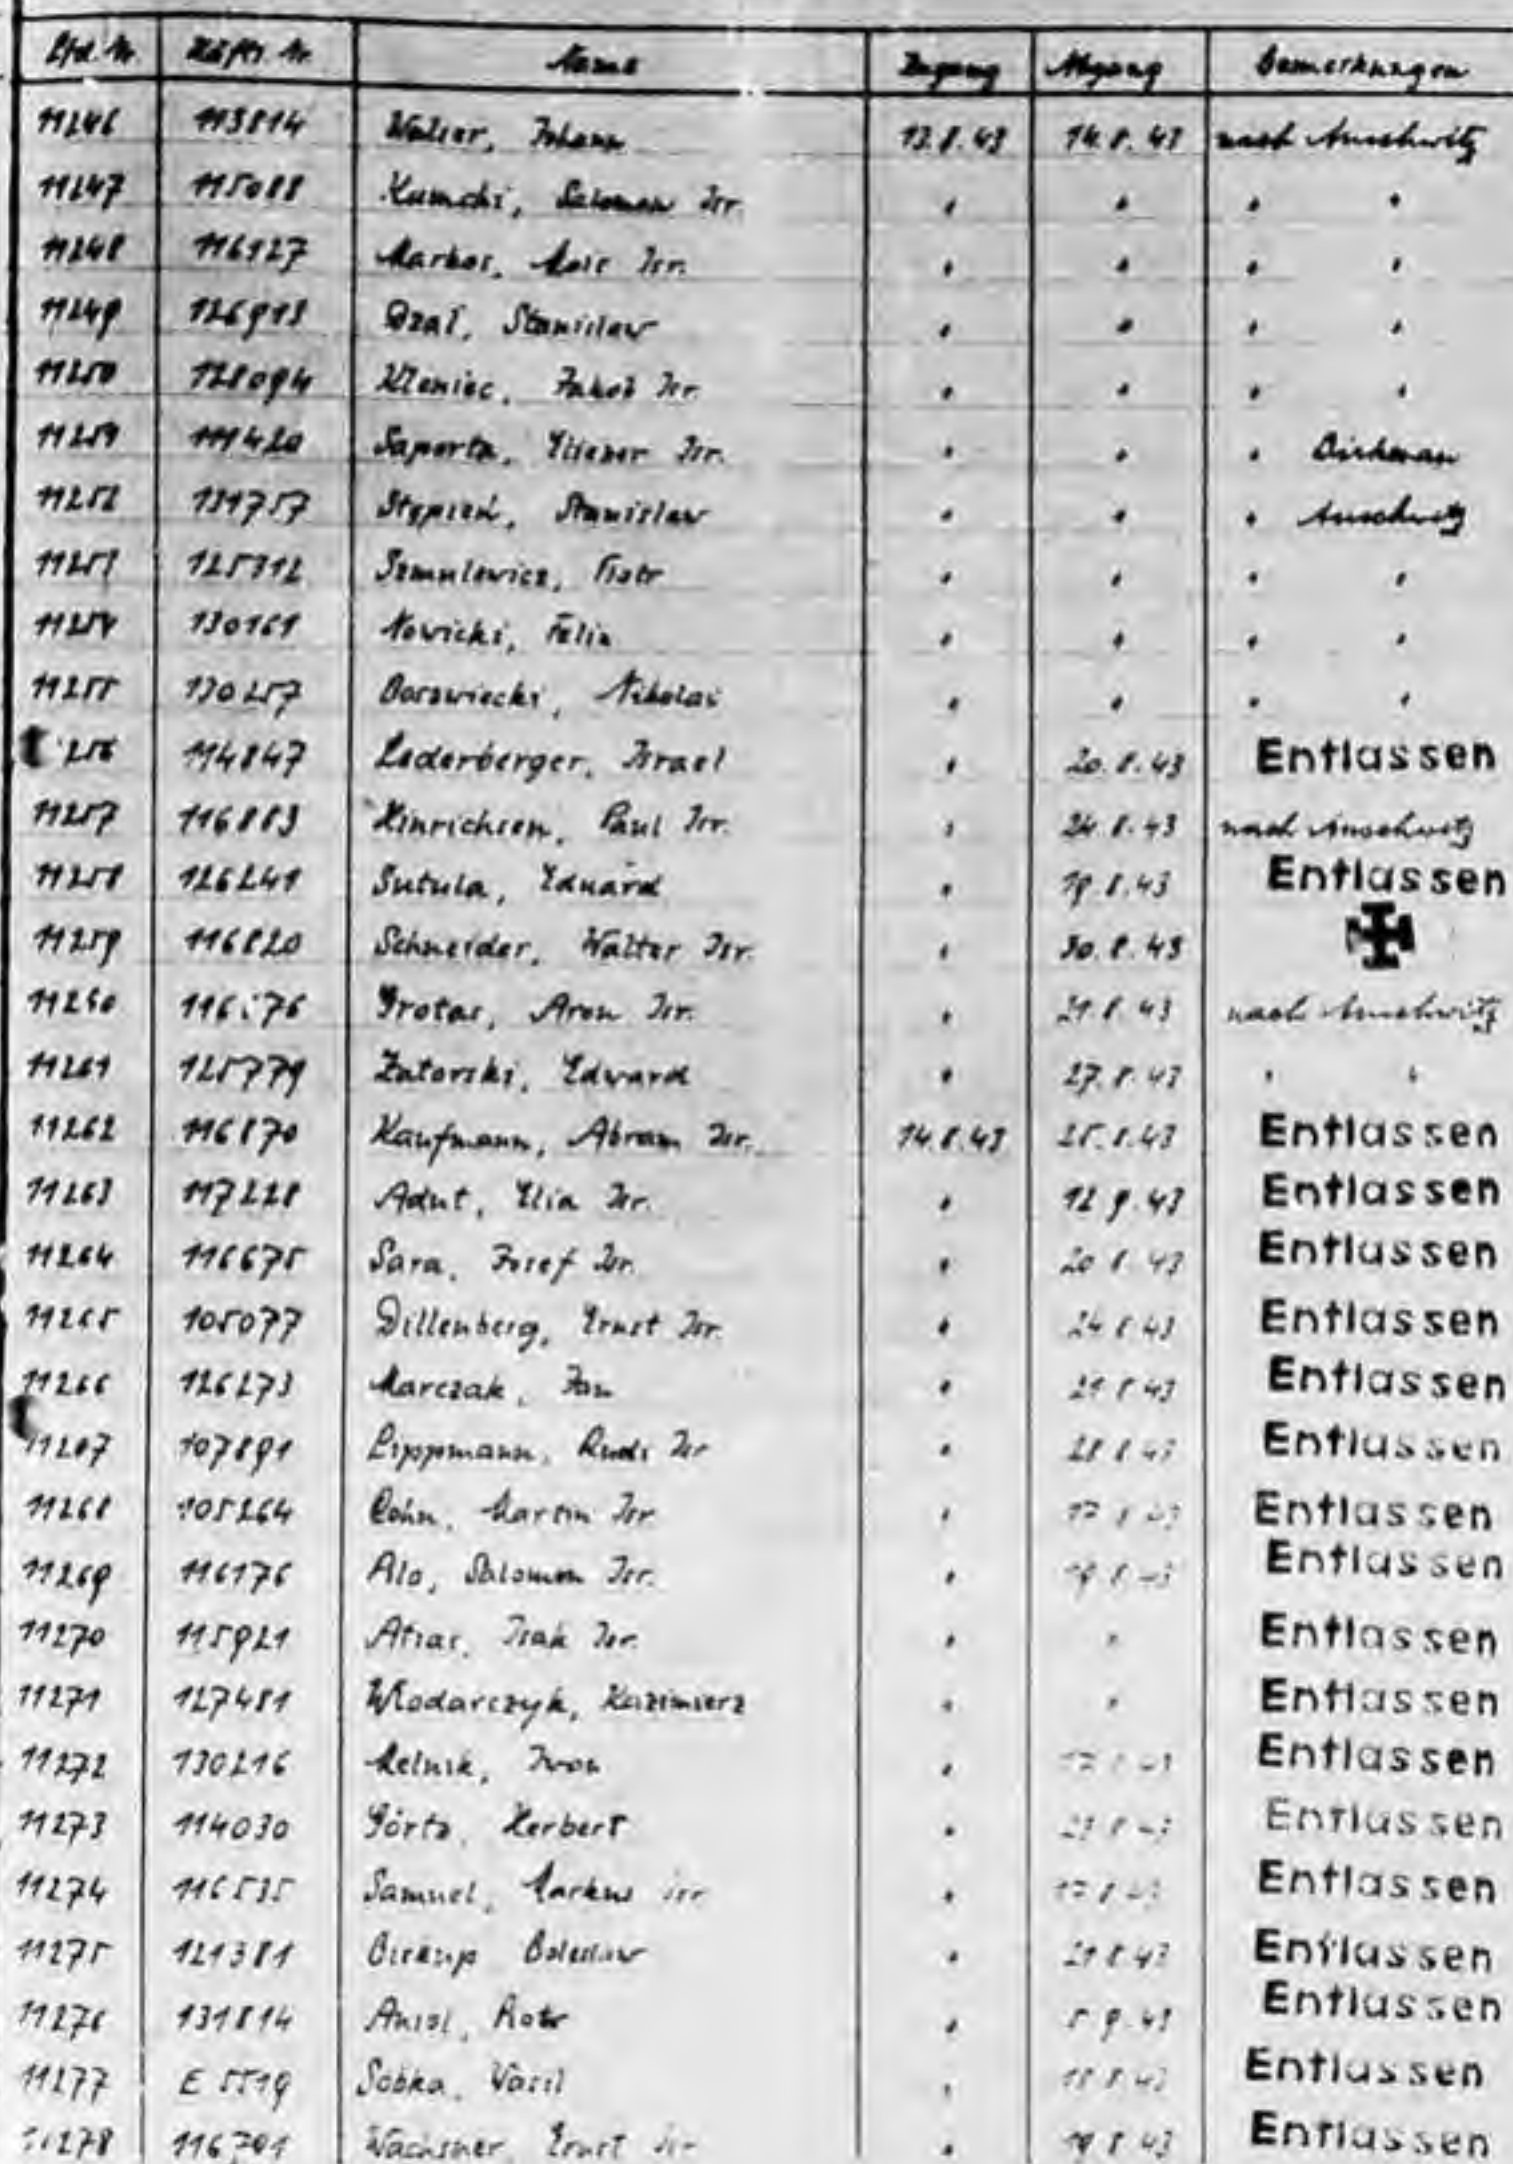 Lfd. Nr. Häftl. Nr. Name Zugang Abgang Bemerkungen
11246 113814 Walser, Johann 13.8.43 14.8.43 nach Auschwitz
11247 115088 Kumchi, Salomon Isr. " " " "
11248 116127 Markos, Mois Isr. " " " "
11249 126913 Dzał, Stanislaw " " " "
11250 128094 Kleniec, Jakob Isr. " " " "
11251 111420 Saporta, Eliezer Isr. " " " Birkenau
11252 131757 Stypień, Stanislaw " " " Auschwitz
11253 125312 Szmulewicz, Piotr " " " "
11254 130161 Nowicki, Felix " " " "
11255 130257 Borzwiecki, Nikolai " " " "
256 114847 Lederberger, Israel " 20.8.43 Entlassen
11257 116883 Hinrichsen, Paul Isr. " 24.8.43 nach Auschwitz
11258 126241 Sutula, Eduard " 19.8.43 Entlassen
11259 116820 Schneider, Walter Isr. " 30.8.43
11260 Grotas, Aron Isr. " 21.8.43 nach Auschwitz
11261 125779 Zatorski, Edward " 27.8.43 " "
11262 116870 Kaufmann, Abram Isr. 14.8.43 25.8.43 Entlassen
11263 117228 Adut, Elia Isr. " 12.9.43 Entlassen
11264 116675 Sara, Josef Isr. " 20.8.43 Entlassen
11265 105077 Dillenberg, Ernst Isr. " 24.8.43 Entlassen
11266 126273 Marczak, Jan " 21.8.43 Entlassen
11267 107891 Lippmann, Rudi Isr " 28.8.43 Entlassen
11268 105264 Cohn, Martin Isr " 17.8.43 Entlassen
11269 116176 Alo, Salomon Isr. " 19.8.43 Entlassen
11270 115921 Atias, Isak Isr. " " Entlassen
11271 127481 Wlodarczyk, Kazimierz " " Entlassen
11272 130216 Melnik, Iwon " 17.8.43 Entlassen
11273 114030 Görtz, Herbert " 23.8.43 Entlassen
11274 116535 Samuel, Markus isr " 17.8.43 Entlassen
11275 121381 Boleslaw " 21.8.43 Entlassen
11276 131814 Aniol, Piotr " 5.9.43 Entlassen
11277 E 5519 Sobka, Wasil " 18.8.43 Entlassen
11278 116701 Wachsner, Ernst isr " 19.8.43 Entlassen